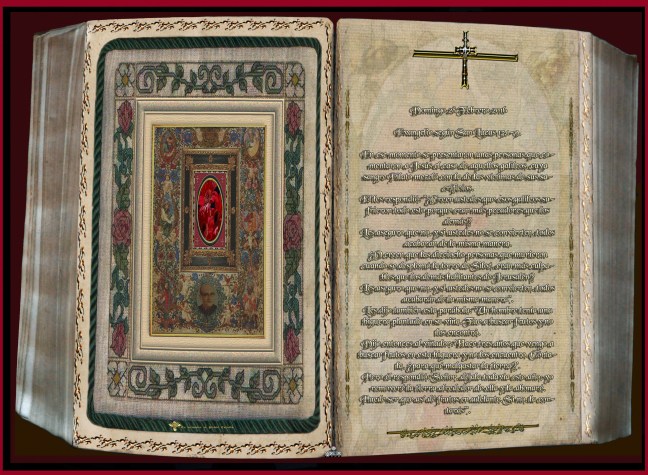 Domingo 28 Febrero 2016
Evangelio según San Lucas 13,1-9.
En ese momento se presentaron unas personas que co-
mentaron a Jesús el caso de aquellos galileos, cuya
sangre Pilato mezcló con la de las víctimas de sus sa-
crificios.
El les respondió: "¿Creen ustedes que esos galileos su-
frieron todo esto porque eran más pecadores que los
demás?
Les aseguro que no, y si ustedes no se convierten, todos
acabarán de la misma manera.
¿O creen que las dieciocho personas que murieron
cuando se desplomó la torre de Siloé, eran más culpa-
bles que los demás habitantes de Jerusalén?
Les aseguro que no, y si ustedes no se convierten, todos
acabarán de la misma manera".
Les dijo también esta parábola: "Un hombre tenía una
higuera plantada en su viña. Fue a buscar frutos y no
los encontró.
Dijo entonces al viñador: 'Hace tres años que vengo a
buscar frutos en esta higuera y no los encuentro. Córta-
la, ¿para qué malgastar la tierra?'.
Pero él respondió: 'Señor, déjala todavía este año; yo
removeré la tierra alrededor de ella y la abonaré.
Puede ser que así dé frutos en adelante. Si no, la cor-
tarás'".